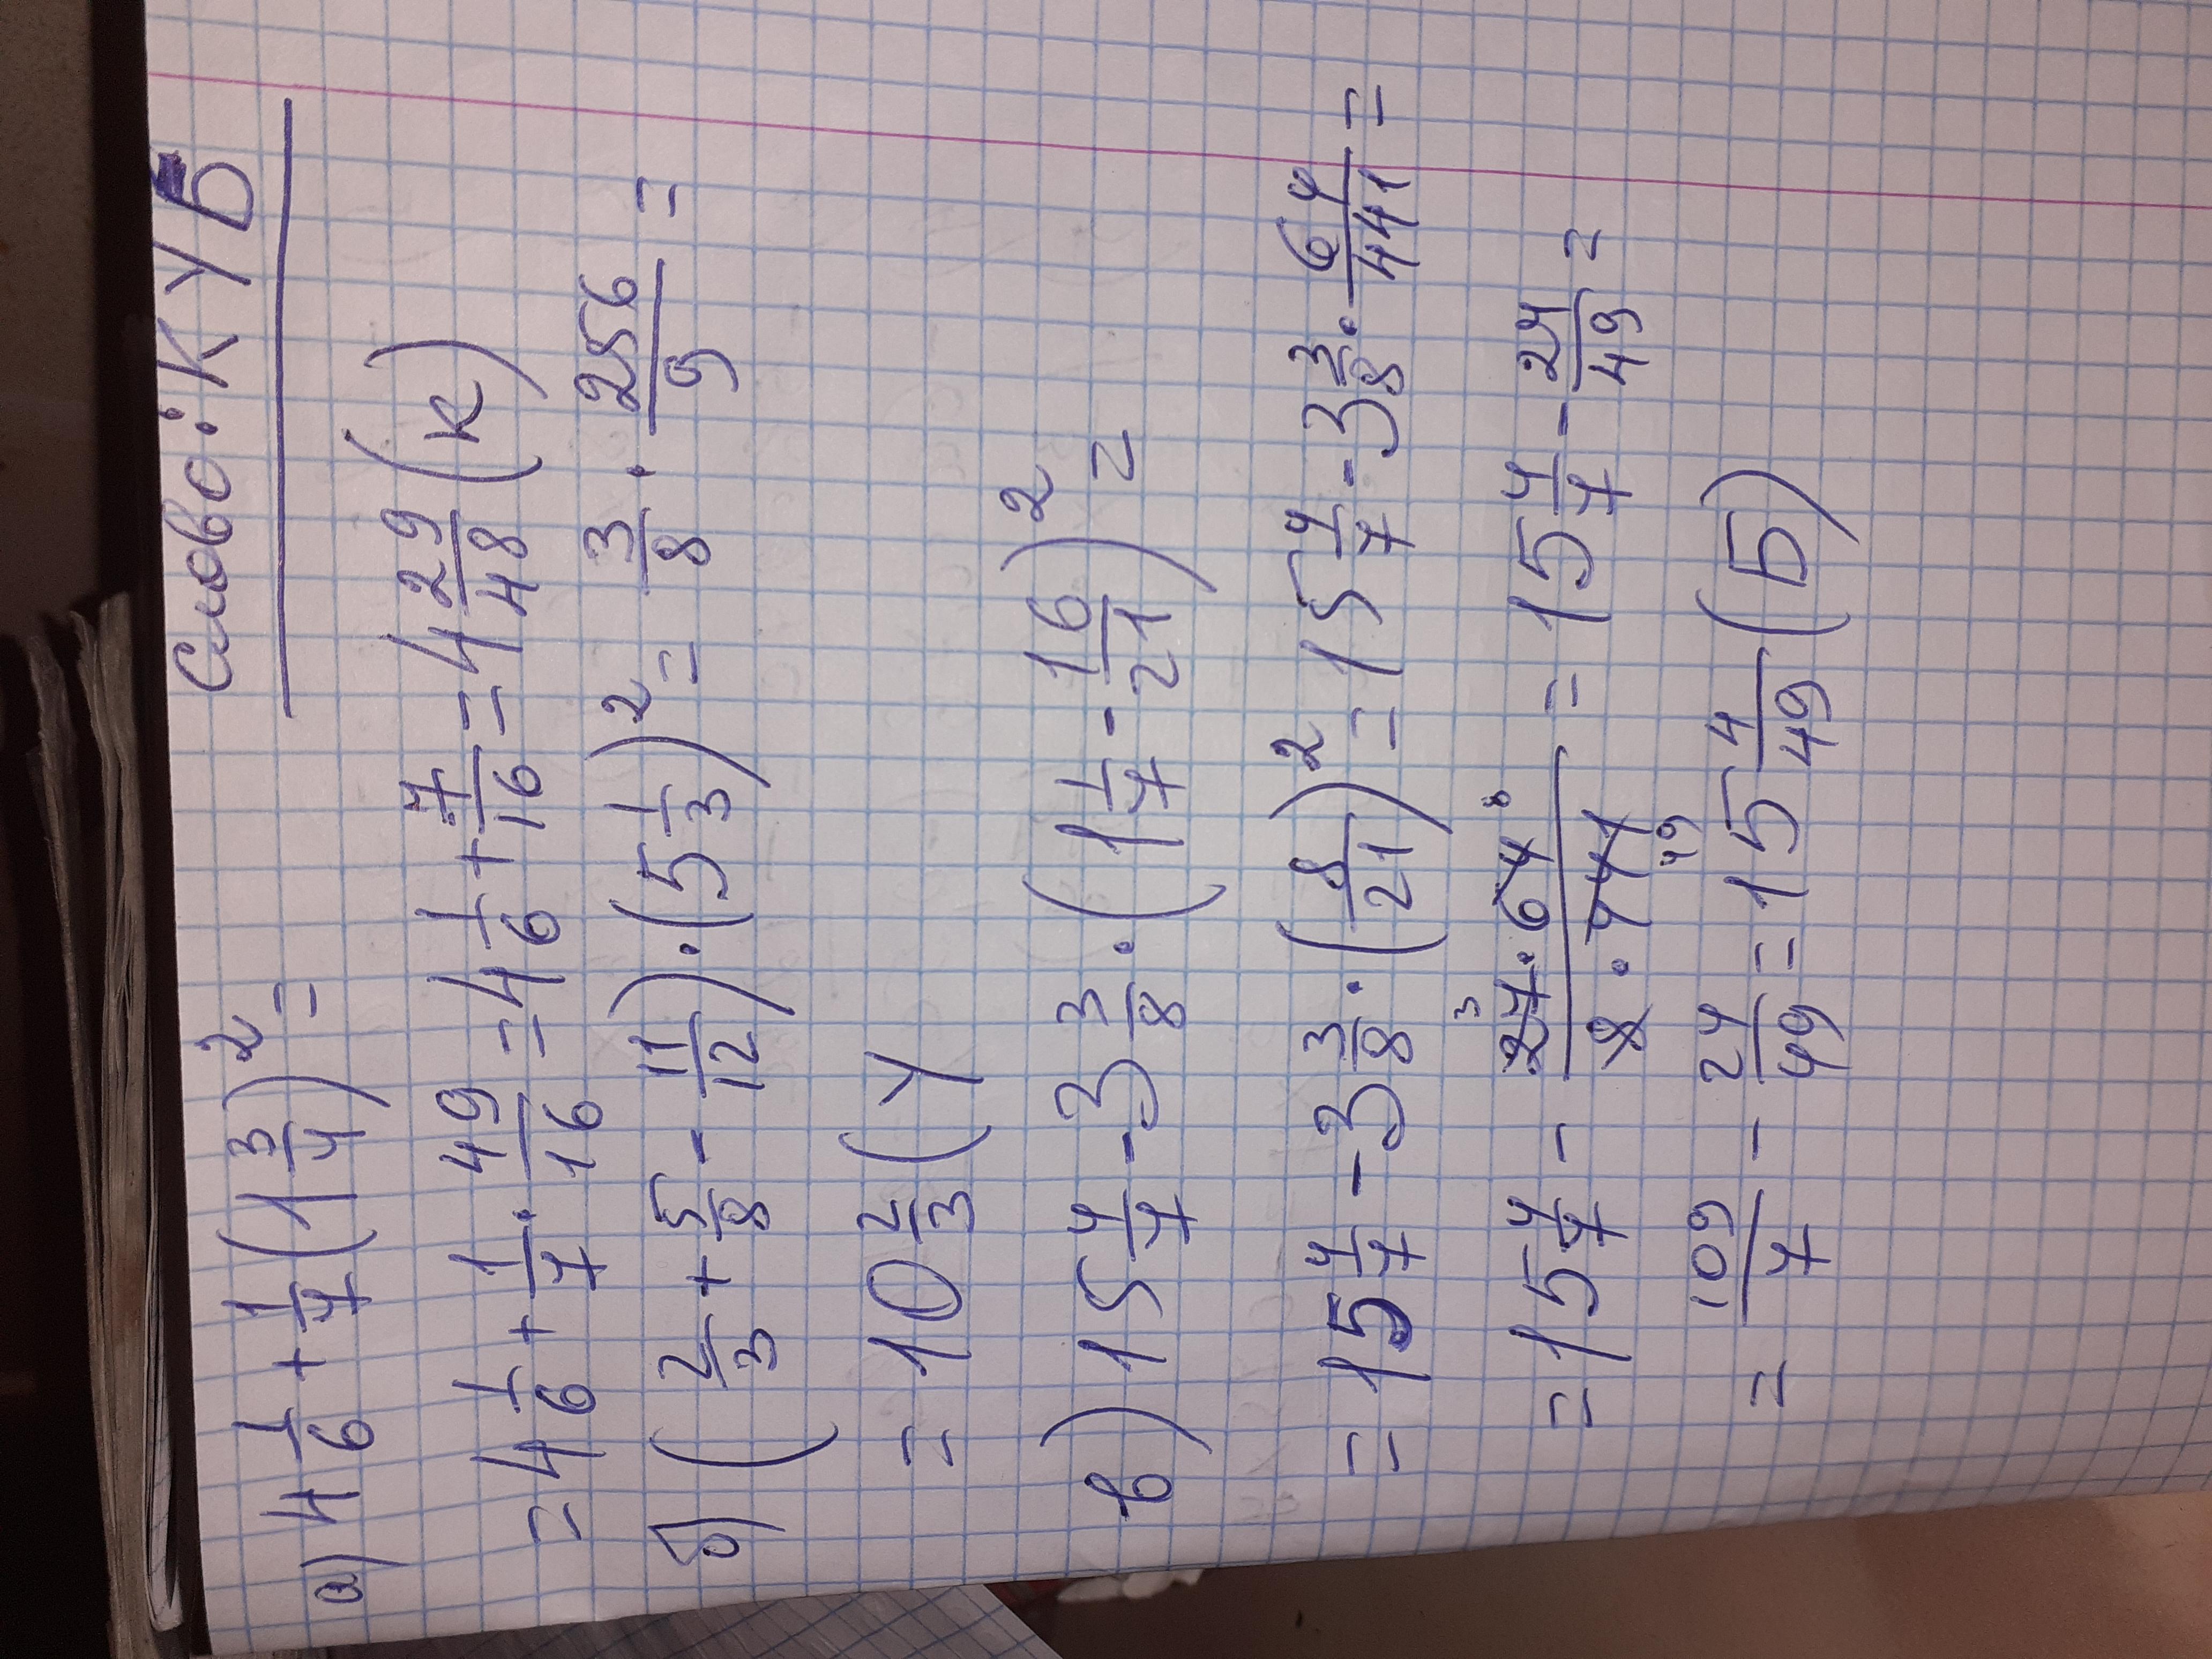 Слово: КУБ
а) 4 1/6 + 1/7 (1 3/4)² =
= 4 1/6 + 1/7 · 49/16 = 4 1/6 + 7/16 = 4 29/48 (К)
б) (2/3 + 5/8 - 11/12) · (5 1/3)² = 3/8 · 256/9 =
= 10 2/3 (У
в) 15 4/7 - 3 3/8 · (1 1/7 - 16/21)² =
= 15 4/7 - 3 3/8 · (8/21)² = 15 4/7 - 3 3/8 · 64/441 =
= 15 4/7 - 27³ · 64⁸ / 8 · 441 49 = 15 4/7 - 24/49 =
= 109/7 - 24/49 = 15 4/49 (Б)